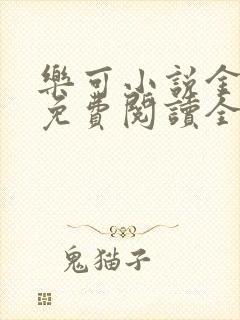 樂可小說全
免費閱讀全
鬼猫子